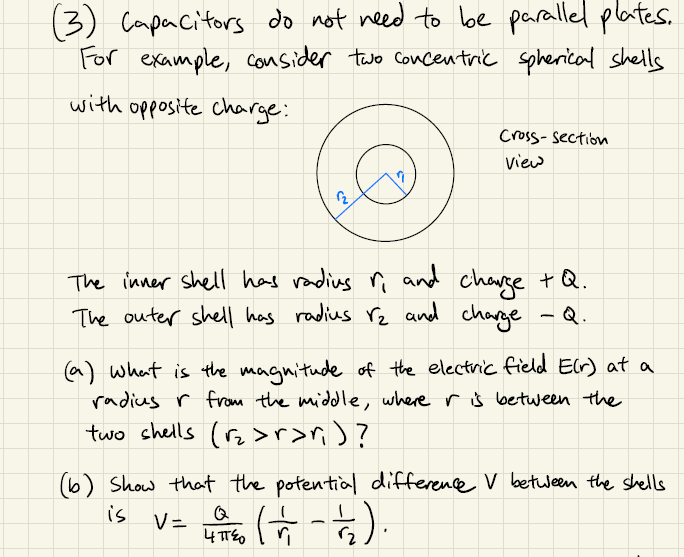 (3) Capacitors do not need to be parallel plates.
For example, consider two concentric spherical shells
with opposite charge:
cross-section
view
r₁
r₂
The inner shell has radius r₁ and charge + Q.
The outer shell has radius r₂ and charge - Q.
(a) What is the magnitude of the electric field E(r) at a
radius r from the middle, where r is between the
two shells (r₂ > r > r₁)?
(b) Show that the potential difference V between the shells
is V = Q/4πε₀ (1/r₁ - 1/r₂).